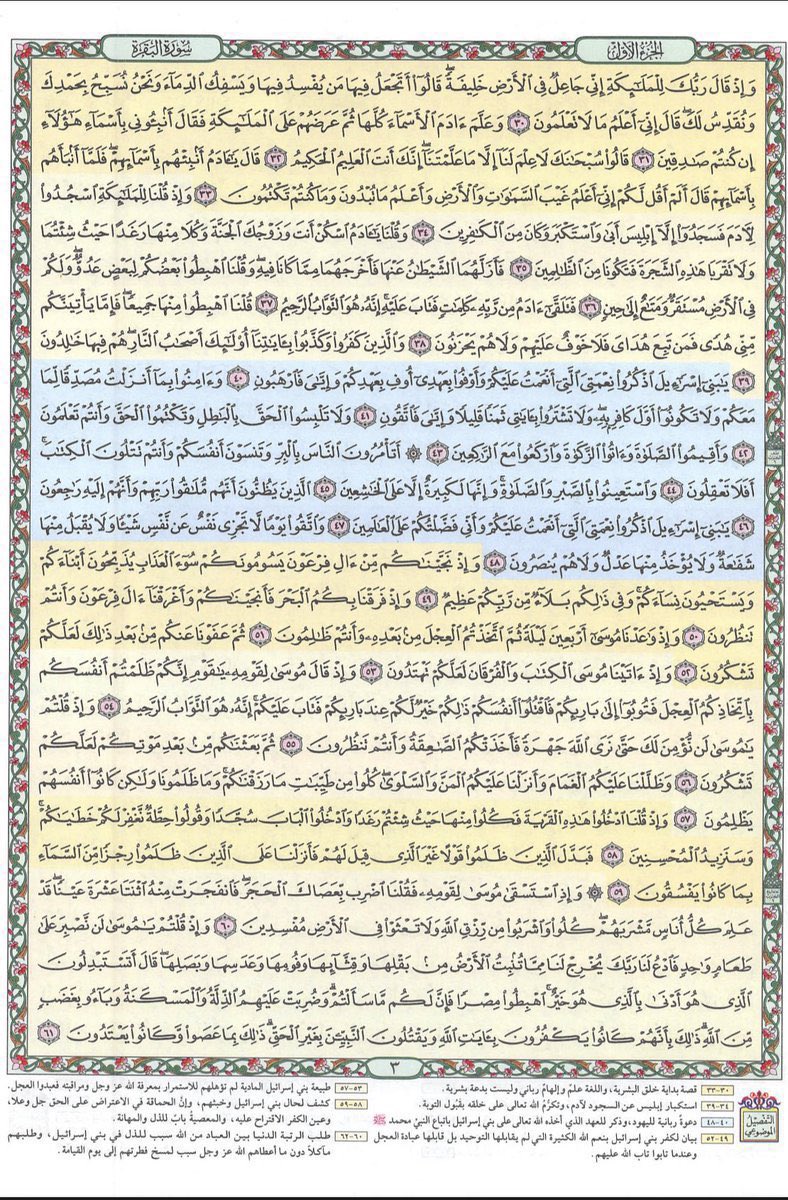 الجزء الأول
سورة البقرة
وَإِذْ قَالَ رَبُّكَ لِلْمَلَٰٓئِكَةِ إِنِّي جَاعِلٌ فِي ٱلْأَرْضِ خَلِيفَةً ۖ قَالُوٓا۟ أَتَجْعَلُ فِيهَا مَن يُفْسِدُ فِيهَا وَيَسْفِكُ ٱلدِّمَآءَ وَنَحْنُ نُسَبِّحُ بِحَمْدِكَ
وَنُقَدِّسُ لَكَ ۖ قَالَ إِنِّيٓ أَعْلَمُ مَا لَا تَعْلَمُونَ ٣٠ وَعَلَّمَ ءَادَمَ ٱلْأَسْمَآءَ كُلَّهَا ثُمَّ عَرَضَهُمْ عَلَى ٱلْمَلَٰٓئِكَةِ فَقَالَ أَنۢبِـُٔونِي بِأَسْمَآءِ هَٰٓؤُلَآءِ
إِن كُنتُمْ صَٰدِقِينَ ٣١ قَالُوا۟ سُبْحَٰنَكَ لَا عِلْمَ لَنَآ إِلَّا مَا عَلَّمْتَنَآ ۖ إِنَّكَ أَنتَ ٱلْعَلِيمُ ٱلْحَكِيمُ ٣٢ قَالَ يَٰٓـَٔادَمُ أَنۢبِئْهُم بِأَسْمَآئِهِمْ ۖ فَلَمَّآ أَنۢبَأَهُم
بِأَسْمَآئِهِمْ قَالَ أَلَمْ أَقُل لَّكُمْ إِنِّيٓ أَعْلَمُ غَيْبَ ٱلسَّمَٰوَٰتِ وَٱلْأَرْضِ وَأَعْلَمُ مَا تُبْدُونَ وَمَا كُنتُمْ تَكْتُمُونَ ٣٣ وَإِذْ قُلْنَا لِلْمَلَٰٓئِكَةِ ٱسْجُدُوا۟
لِـَٔادَمَ فَسَجَدُوٓا۟ إِلَّآ إِبْلِيسَ أَبَىٰ وَٱسْتَكْبَرَ وَكَانَ مِنَ ٱلْكَٰفِرِينَ ٣٤ وَقُلْنَا يَٰٓـَٔادَمُ ٱسْكُنْ أَنتَ وَزَوْجُكَ ٱلْجَنَّةَ وَكُلَا مِنْهَا رَغَدًا حَيْثُ شِئْتُمَا
وَلَا تَقْرَبَا هَٰذِهِ ٱلشَّجَرَةَ فَتَكُونَا مِنَ ٱلظَّٰلِمِينَ ٣٥ فَأَزَلَّهُمَا ٱلشَّيْطَٰنُ عَنْهَا فَأَخْرَجَهُمَا مِمَّا كَانَا فِيهِ ۖ وَقُلْنَا ٱهْبِطُوا۟ بَعْضُكُمْ لِبَعْضٍ عَدُوٌّ ۖ وَلَكُمْ
فِي ٱلْأَرْضِ مُسْتَقَرٌّ وَمَتَٰعٌ إِلَىٰ حِينٍ ٣٦ فَتَلَقَّىٰٓ ءَادَمُ مِن رَّبِّهِۦ كَلِمَٰتٍ فَتَابَ عَلَيْهِ ۚ إِنَّهُۥ هُوَ ٱلتَّوَّابُ ٱلرَّحِيمُ ٣٧ قُلْنَا ٱهْبِطُوا۟ مِنْهَا جَمِيعًا ۖ فَإِمَّا يَأْتِيَنَّكُم
مِّنِّي هُدًى فَمَن تَبِعَ هُدَايَ فَلَا خَوْفٌ عَلَيْهِمْ وَلَا هُمْ يَحْزَنُونَ ٣٨ وَٱلَّذِينَ كَفَرُوا۟ وَكَذَّبُوا۟ بِـَٔايَٰتِنَآ أُو۟لَٰٓئِكَ أَصْحَٰبُ ٱلنَّارِ ۖ هُمْ فِيهَا خَٰلِدُونَ
٣٩ يَٰبَنِيٓ إِسْرَٰٓءِيلَ ٱذْكُرُوا۟ نِعْمَتِيَ ٱلَّتِيٓ أَنْعَمْتُ عَلَيْكُمْ وَأَوْفُوا۟ بِعَهْدِيٓ أُوفِ بِعَهْدِكُمْ وَإِيَّٰيَ فَٱرْهَبُونِ ٤٠ وَءَامِنُوا۟ بِمَآ أَنزَلْتُ مُصَدِّقًا لِّمَا
مَعَكُمْ وَلَا تَكُونُوٓا۟ أَوَّلَ كَافِرٍۭ بِهِۦ ۖ وَلَا تَشْتَرُوا۟ بِـَٔايَٰتِي ثَمَنًا قَلِيلًا وَإِيَّٰيَ فَٱتَّقُونِ ٤١ وَلَا تَلْبِسُوا۟ ٱلْحَقَّ بِٱلْبَٰطِلِ وَتَكْتُمُوا۟ ٱلْحَقَّ وَأَنتُمْ تَعْلَمُونَ
٤٢ وَأَقِيمُوا۟ ٱلصَّلَوٰةَ وَءَاتُوا۟ ٱلزَّكَوٰةَ وَٱرْكَعُوا۟ مَعَ ٱلرَّٰكِعِينَ ٤٣ ۞ أَتَأْمُرُونَ ٱلنَّاسَ بِٱلْبِرِّ وَتَنسَوْنَ أَنفُسَكُمْ وَأَنتُمْ تَتْلُونَ ٱلْكِتَٰبَ ۚ
أَفَلَا تَعْقِلُونَ ٤٤ وَٱسْتَعِينُوا۟ بِٱلصَّبْرِ وَٱلصَّلَوٰةِ ۚ وَإِنَّهَا لَكَبِيرَةٌ إِلَّا عَلَى ٱلْخَٰشِعِينَ ٤٥ ٱلَّذِينَ يَظُنُّونَ أَنَّهُم مُّلَٰقُوا۟ رَبِّهِمْ وَأَنَّهُمْ إِلَيْهِ رَٰجِعُونَ
٤٦ يَٰبَنِيٓ إِسْرَٰٓءِيلَ ٱذْكُرُوا۟ نِعْمَتِيَ ٱلَّتِيٓ أَنْعَمْتُ عَلَيْكُمْ وَأَنِّي فَضَّلْتُكُمْ عَلَى ٱلْعَٰلَمِينَ ٤٧ وَٱتَّقُوا۟ يَوْمًا لَّا تَجْزِي نَفْسٌ عَن نَّفْسٍ شَيْـًٔا وَلَا يُقْبَلُ مِنْهَا
شَفَٰعَةٌ وَلَا يُؤْخَذُ مِنْهَا عَدْلٌ وَلَا هُمْ يُنصَرُونَ ٤٨ وَإِذْ نَجَّيْنَٰكُم مِّنْ ءَالِ فِرْعَوْنَ يَسُومُونَكُمْ سُوٓءَ ٱلْعَذَابِ يُذَبِّحُونَ أَبْنَآءَكُمْ
وَيَسْتَحْيُونَ نِسَآءَكُمْ ۚ وَفِي ذَٰلِكُم بَلَآءٌ مِّن رَّبِّكُمْ عَظِيمٌ ٤٩ وَإِذْ فَرَقْنَا بِكُمُ ٱلْبَحْرَ فَأَنجَيْنَٰكُمْ وَأَغْرَقْنَآ ءَالَ فِرْعَوْنَ وَأَنتُمْ
تَنظُرُونَ ٥٠ وَإِذْ وَٰعَدْنَا مُوسَىٰٓ أَرْبَعِينَ لَيْلَةً ثُمَّ ٱتَّخَذْتُمُ ٱلْعِجْلَ مِنۢ بَعْدِهِۦ وَأَنتُمْ ظَٰلِمُونَ ٥١ ثُمَّ عَفَوْنَا عَنكُم مِّنۢ بَعْدِ ذَٰلِكَ لَعَلَّكُمْ
تَشْكُرُونَ ٥٢ وَإِذْ ءَاتَيْنَا مُوسَى ٱلْكِتَٰبَ وَٱلْفُرْقَانَ لَعَلَّكُمْ تَهْتَدُونَ ٥٣ وَإِذْ قَالَ مُوسَىٰ لِقَوْمِهِۦ يَٰقَوْمِ إِنَّكُمْ ظَلَمْتُمْ أَنفُسَكُم
بِٱتِّخَاذِكُمُ ٱلْعِجْلَ فَتُوبُوٓا۟ إِلَىٰ بَارِئِكُمْ فَٱقْتُلُوٓا۟ أَنفُسَكُمْ ذَٰلِكُمْ خَيْرٌ لَّكُمْ عِندَ بَارِئِكُمْ فَتَابَ عَلَيْكُمْ ۚ إِنَّهُۥ هُوَ ٱلتَّوَّابُ ٱلرَّحِيمُ ٥٤ وَإِذْ قُلْتُمْ
يَٰمُوسَىٰ لَن نُّؤْمِنَ لَكَ حَتَّىٰ نَرَى ٱللَّهَ جَهْرَةً فَأَخَذَتْكُمُ ٱلصَّٰعِقَةُ وَأَنتُمْ تَنظُرُونَ ٥٥ ثُمَّ بَعَثْنَٰكُم مِّنۢ بَعْدِ مَوْتِكُمْ لَعَلَّكُمْ
تَشْكُرُونَ ٥٦ وَظَلَّلْنَا عَلَيْكُمُ ٱلْغَمَامَ وَأَنزَلْنَا عَلَيْكُمُ ٱلْمَنَّ وَٱلسَّلْوَىٰ ۖ كُلُوا۟ مِن طَيِّبَٰتِ مَا رَزَقْنَٰكُمْ ۖ وَمَا ظَلَمُونَا وَلَٰكِن كَانُوٓا۟ أَنفُسَهُمْ
يَظْلِمُونَ ٥٧ وَإِذْ قُلْنَا ٱدْخُلُوا۟ هَٰذِهِ ٱلْقَرْيَةَ فَكُلُوا۟ مِنْهَا حَيْثُ شِئْتُمْ رَغَدًا وَٱدْخُلُوا۟ ٱلْبَابَ سُجَّدًا وَقُولُوا۟ حِطَّةٌ نَّغْفِرْ لَكُمْ خَطَٰيَٰكُمْ ۚ
وَسَنَزِيدُ ٱلْمُحْسِنِينَ ٥٨ فَبَدَّلَ ٱلَّذِينَ ظَلَمُوا۟ قَوْلًا غَيْرَ ٱلَّذِي قِيلَ لَهُمْ فَأَنزَلْنَا عَلَى ٱلَّذِينَ ظَلَمُوا۟ رِجْزًا مِّنَ ٱلسَّمَآءِ
بِمَا كَانُوا۟ يَفْسُقُونَ ٥٩ ۞ وَإِذِ ٱسْتَسْقَىٰ مُوسَىٰ لِقَوْمِهِۦ فَقُلْنَا ٱضْرِب بِّعَصَاكَ ٱلْحَجَرَ ۖ فَٱنفَجَرَتْ مِنْهُ ٱثْنَتَا عَشْرَةَ عَيْنًا ۖ قَدْ
عَلِمَ كُلُّ أُنَاسٍ مَّشْرَبَهُمْ ۖ كُلُوا۟ وَٱشْرَبُوا۟ مِن رِّزْقِ ٱللَّهِ وَلَا تَعْثَوْا۟ فِي ٱلْأَرْضِ مُفْسِدِينَ ٦٠ وَإِذْ قُلْتُمْ يَٰمُوسَىٰ لَن نَّصْبِرَ عَلَىٰ
طَعَامٍ وَٰحِدٍ فَٱدْعُ لَنَا رَبَّكَ يُخْرِجْ لَنَا مِمَّا تُنۢبِتُ ٱلْأَرْضُ مِنۢ بَقْلِهَا وَقِثَّآئِهَا وَفُومِهَا وَعَدَسِهَا وَبَصَلِهَا ۖ قَالَ أَتَسْتَبْدِلُونَ
ٱلَّذِي هُوَ أَدْنَىٰ بِٱلَّذِي هُوَ خَيْرٌ ۚ ٱهْبِطُوا۟ مِصْرًا فَإِنَّ لَكُم مَّا سَأَلْتُمْ ۗ وَضُرِبَتْ عَلَيْهِمُ ٱلذِّلَّةُ وَٱلْمَسْكَنَةُ وَبَآءُو بِغَضَبٍ
مِّنَ ٱللَّهِ ۗ ذَٰلِكَ بِأَنَّهُمْ كَانُوا۟ يَكْفُرُونَ بِـَٔايَٰتِ ٱللَّهِ وَيَقْتُلُونَ ٱلنَّبِيِّـۧنَ بِغَيْرِ ٱلْحَقِّ ۗ ذَٰلِكَ بِمَا عَصَوا۟ وَّكَانُوا۟ يَعْتَدُونَ ٦١
٣
التفصيل
الموضوعي
٣٠-٣٣ قصة بداية خلق البشرية، واللغة علمٌ وإلهامٌ رباني وليست بدعة بشرية.
٣٤-٣٩ استكبار إبليس عن السجود لآدم، وتكرُّمُ الله تعالى على خلقه بقَبُول التوبة.
٤٠-٤٨ دعوةٌ ربانية لليهود، وذكر للعهد الذي أخذه الله تعالى على بني إسرائيل باتباع النبيِّ محمد ﷺ
٤٩-٥٢ بيان لكفر بني إسرائيل بنعم الله الكثيرة التي لم يقابلها التوحيد بل قابلها عبادة العجل
وعندما تابوا تاب الله عليهم.
٥٣-٥٧ طبيعة بني إسرائيل المادية لم تؤهلهم للاستمرار بمعرفة الله عز وجل ومراقبته فعبدوا العجل.
٥٨-٥٩ كشف لحال بني إسرائيل وخبثهم، وإنَّ الحماقة في الاعتراض على الحق جل وعلا،
وعين الكفر الاقتراح عليه، والمعصيةُ بابٌ للذل والمهانة.
٦٠-٦٢ طلب الرتبة الدنيا بين العباد من الله سبب للذل في بني إسرائيل، وطلبهم
مأكلاً دون ما أعطاهم الله عز وجل سبب لمسخ فطرتهم إلى يوم القيامة.